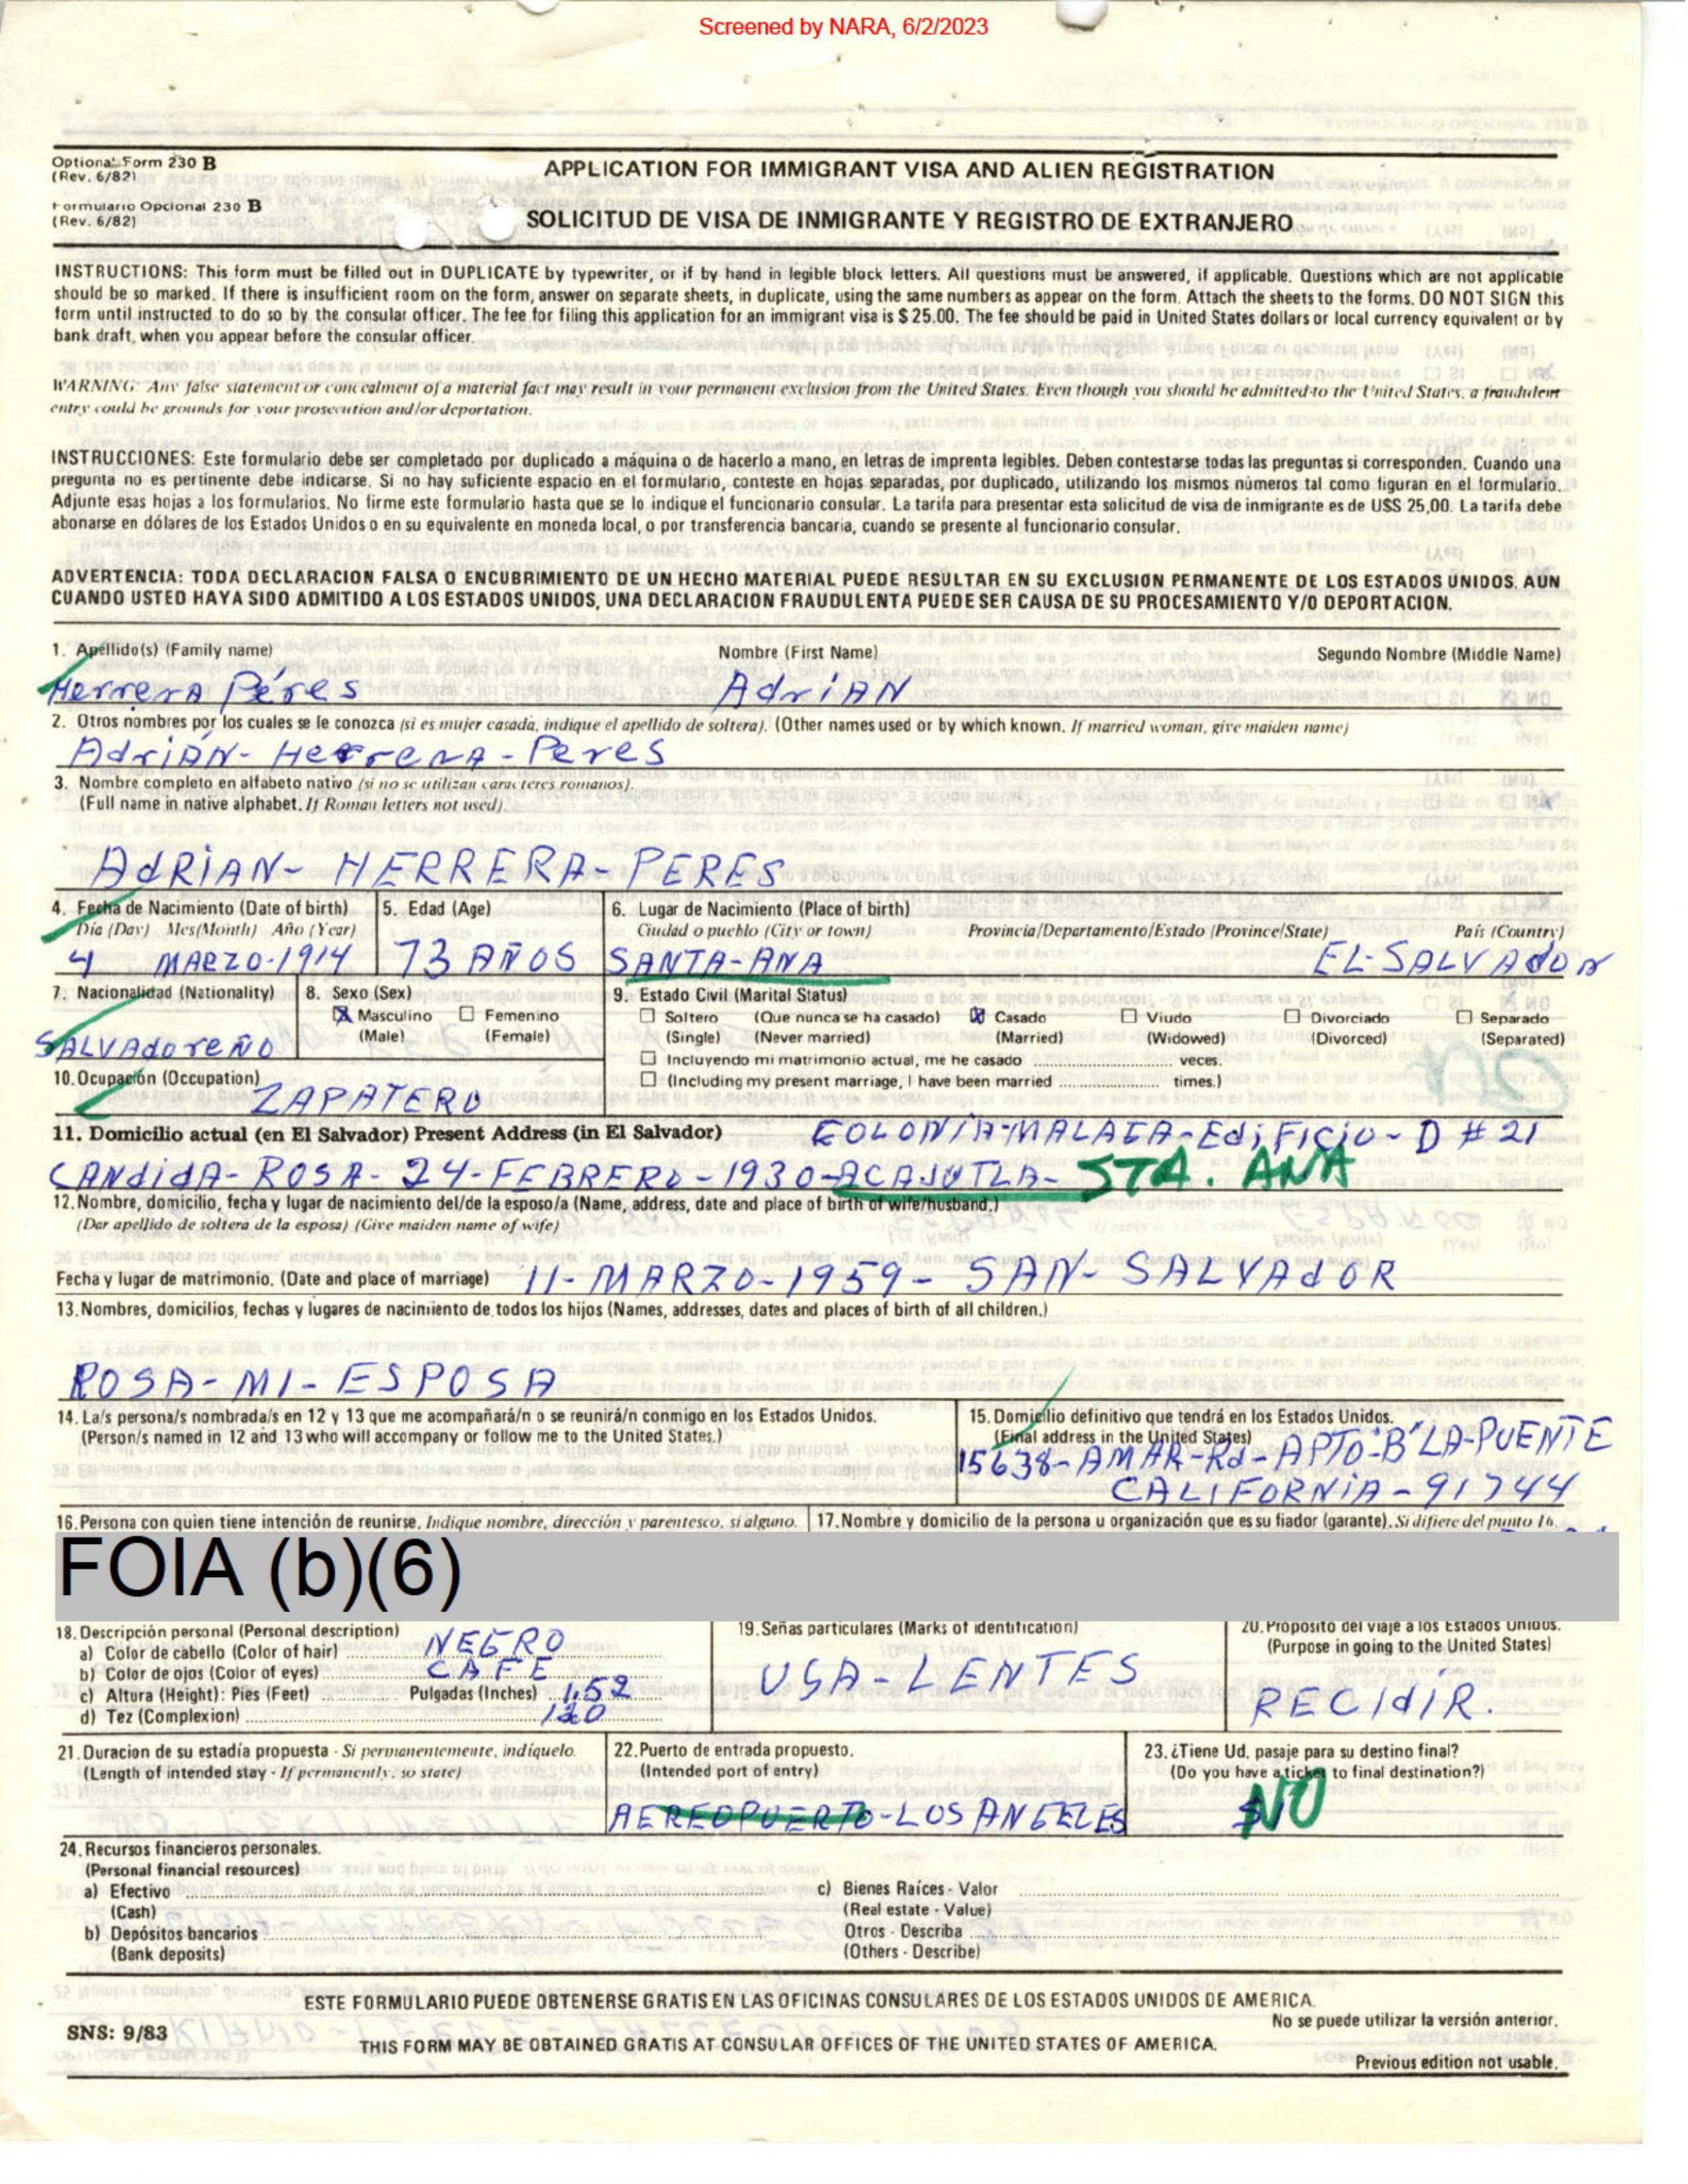 Screened by NARA, 6/2/2023
Optional Form 230 B
(Rev. 6/82)
Formulario Opcional 230 B
(Rev. 6/82)
APPLICATION FOR IMMIGRANT VISA AND ALIEN REGISTRATION
SOLICITUD DE VISA DE INMIGRANTE Y REGISTRO DE EXTRANJERO
INSTRUCTIONS: This form must be filled out in DUPLICATE by typewriter, or if by hand in legible block letters. All questions must be answered, if applicable. Questions which are not applicable
should be so marked. If there is insufficient room on the form, answer on separate sheets, in duplicate, using the same numbers as appear on the form. Attach the sheets to the forms. DO NOT SIGN this
form until instructed to do so by the consular officer. The fee for filing this application for an immigrant visa is $ 25.00. The fee should be paid in United States dollars or local currency equivalent or by
bank draft, when you appear before the consular officer.
WARNING: Any false statement or concealment of a material fact may result in your permanent exclusion from the United States. Even though you should be admitted to the United States, a fraudulent
entry could be grounds for your prosecution and/or deportation.
INSTRUCCIONES: Este formulario debe ser completado por duplicado a máquina o de hacerlo a mano, en letras de imprenta legibles. Deben contestarse todas las preguntas si corresponden. Cuando una
pregunta no es pertinente debe indicarse. Si no hay suficiente espacio en el formulario, conteste en hojas separadas, por duplicado, utilizando los mismos números tal como figuran en el formulario.
Adjunte esas hojas a los formularios. No firme este formulario hasta que se lo indique el funcionario consular. La tarifa para presentar esta solicitud de visa de inmigrante es de U$S 25,00. La tarifa debe
abonarse en dólares de los Estados Unidos o en su equivalente en moneda local, o por transferencia bancaria, cuando se presente al funcionario consular.
ADVERTENCIA: TODA DECLARACION FALSA O ENCUBRIMIENTO DE UN HECHO MATERIAL PUEDE RESULTAR EN SU EXCLUSION PERMANENTE DE LOS ESTADOS UNIDOS. AUN
CUANDO USTED HAYA SIDO ADMITIDO A LOS ESTADOS UNIDOS, UNA DECLARACION FRAUDULENTA PUEDE SER CAUSA DE SU PROCESAMIENTO Y/O DEPORTACION.
1. Apellido(s) (Family name) Nombre (First Name) Segundo Nombre (Middle Name)
Herrera Péres Adrian
2. Otros nombres por los cuales se le conozca (si es mujer casada, indique el apellido de soltera). (Other names used or by which known. If married woman, give maiden name)
Adrián-Herrera-Peres
3. Nombre completo en alfabeto nativo (si no se utilizan caracteres romanos).
(Full name in native alphabet. If Roman letters not used).
ADRIAN- HERRERA- PERES
4. Fecha de Nacimiento (Date of birth) 5. Edad (Age) 6. Lugar de Nacimiento (Place of birth)
Día (Day) Mes(Month) Año (Year) Ciudad o pueblo (City or town) Provincia/Departamento/Estado (Province/State) País (Country)
4 MARZO-1914 73 AÑOS SANTA-ANA EL-SALVADOR
7. Nacionalidad (Nationality) 8. Sexo (Sex) 9. Estado Civil (Marital Status)
Masculino Femenino Soltero (Que nunca se ha casado) Casado Viudo Divorciado Separado
(Male) (Female) (Single) (Never married) (Married) (Widowed) (Divorced) (Separated)
SALVAdoreÑO
Incluyendo mi matrimonio actual, me he casado veces.
(Including my present marriage, I have been married times.)
NO
10. Ocupación (Occupation)
ZAPATERO
11. Domicilio actual (en El Salvador) Present Address (in El Salvador) COLONIA-MALAGA-EdiFicio-D #21
CANdidA-ROSA-24-FEBRERO-1930-ACAJUTLA- STA. ANA
12. Nombre, domicilio, fecha y lugar de nacimiento del/de la esposo/a (Name, address, date and place of birth of wife/husband.)
(Dar apellido de soltera de la esposa) (Give maiden name of wife)
Fecha y lugar de matrimonio. (Date and place of marriage) 11-MARZO-1959- SAN-SALVADOR
13. Nombres, domicilios, fechas y lugares de nacimiento de todos los hijos (Names, addresses, dates and places of birth of all children.)
ROSA-MI-ESPOSA
14. La/s persona/s nombrada/s en 12 y 13 que me acompañará/n o se reunirá/n conmigo en los Estados Unidos.
(Person/s named in 12 and 13 who will accompany or follow me to the United States.)
15. Domicilio definitivo que tendrá en los Estados Unidos.
(Final address in the United States)
15638-AMAR-Rd-APTO-"B" LA-PUENTE
CALIFORNiA-91744
16. Persona con quien tiene intención de reunirse. Indique nombre, dirección y parentesco, si alguno.
17. Nombre y domicilio de la persona u organización que es su fiador (garante). Si difiere del punto 16.
FOIA (b)(6)
18. Descripción personal (Personal description)
a) Color de cabello (Color of hair) NEGRO
b) Color de ojos (Color of eyes) CAFE
c) Altura (Height): Pies (Feet) Pulgadas (Inches) 1.52
d) Tez (Complexion) 120
19. Señas particulares (Marks of identification)
USA-LENTES
20. Propósito del viaje a los Estados Unidos.
(Purpose in going to the United States)
RECIdIR.
21. Duracion de su estadía propuesta - Si permanentemente, indíquelo.
(Length of intended stay - If permanently, so state)
22. Puerto de entrada propuesto.
(Intended port of entry)
AEREOPUERTO-LOS ANGELES
23. ¿Tiene Ud. pasaje para su destino final?
(Do you have a ticket to final destination?)
NO
24. Recursos financieros personales.
(Personal financial resources)
a) Efectivo
(Cash)
b) Depósitos bancarios
(Bank deposits)
c) Bienes Raíces - Valor
(Real estate - Value)
Otros - Describa
(Others - Describe)
ESTE FORMULARIO PUEDE OBTENERSE GRATIS EN LAS OFICINAS CONSULARES DE LOS ESTADOS UNIDOS DE AMERICA.
No se puede utilizar la versión anterior.
SNS: 9/83
THIS FORM MAY BE OBTAINED GRATIS AT CONSULAR OFFICES OF THE UNITED STATES OF AMERICA.
Previous edition not usable.